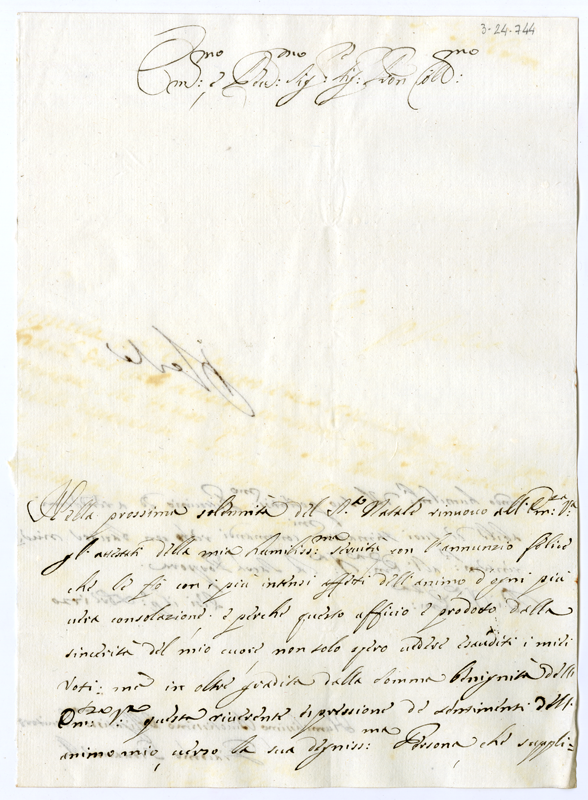 3-24-744
Em:mo e Reu:mo Sig:r Sig:r Pron Coll:mo
Nella prossima solennità del S.to Natale rinuouo all'Em:za V.ra
gl'attestati della mia humiliss:ma seruitù con l'annunzio felice
che le fò con i più intensi affetti dell'animo d'ogni più
uera consolazione: e perche questo afficio è prodotto dalla
sincerità del mio cuore non solo spero uedere esauditi i miei
Voti: mà in oltre gradita dalla somma benignità dell'
Em:za V:ra questa riuerente espressione de sentimenti dell'
animo mio, uerso la sua degniss:ma Persona, che suppli=